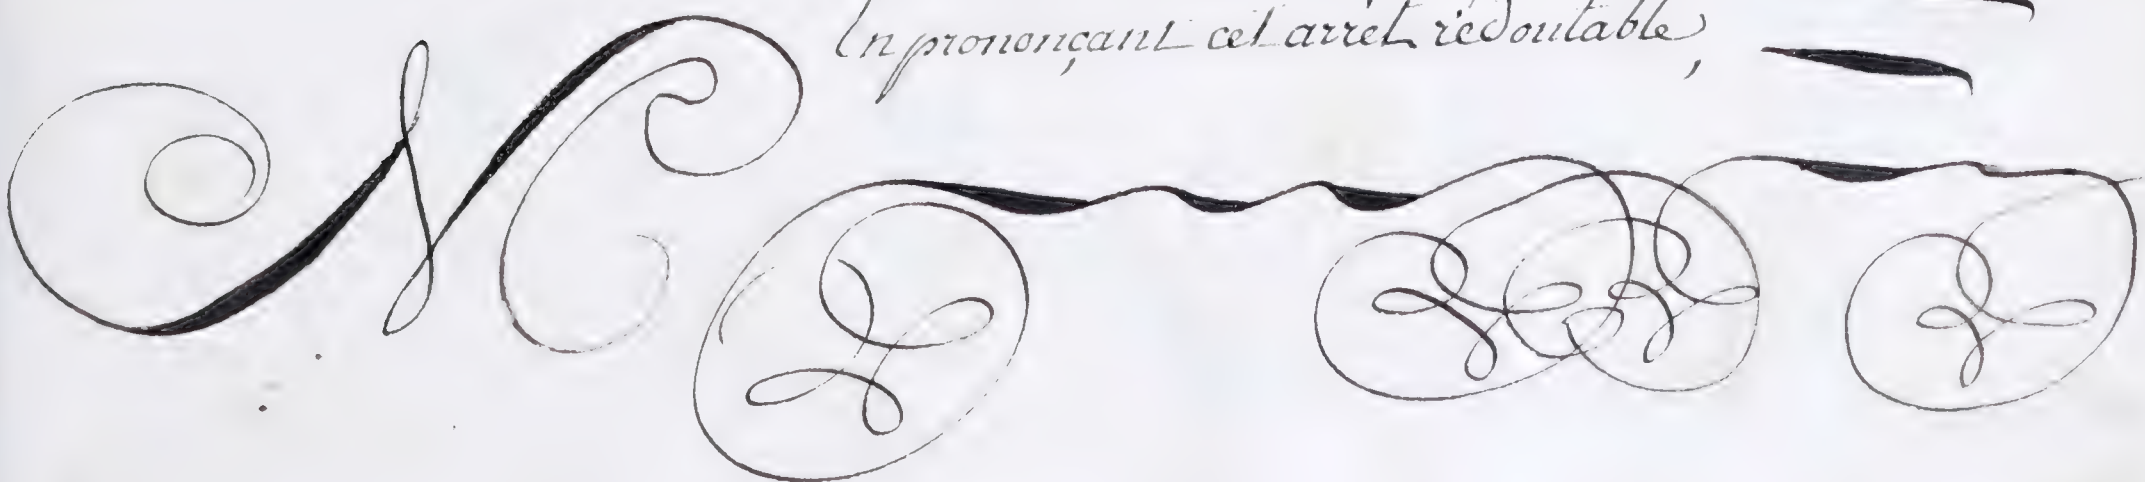 En prononçant cet arrêt redoutable,